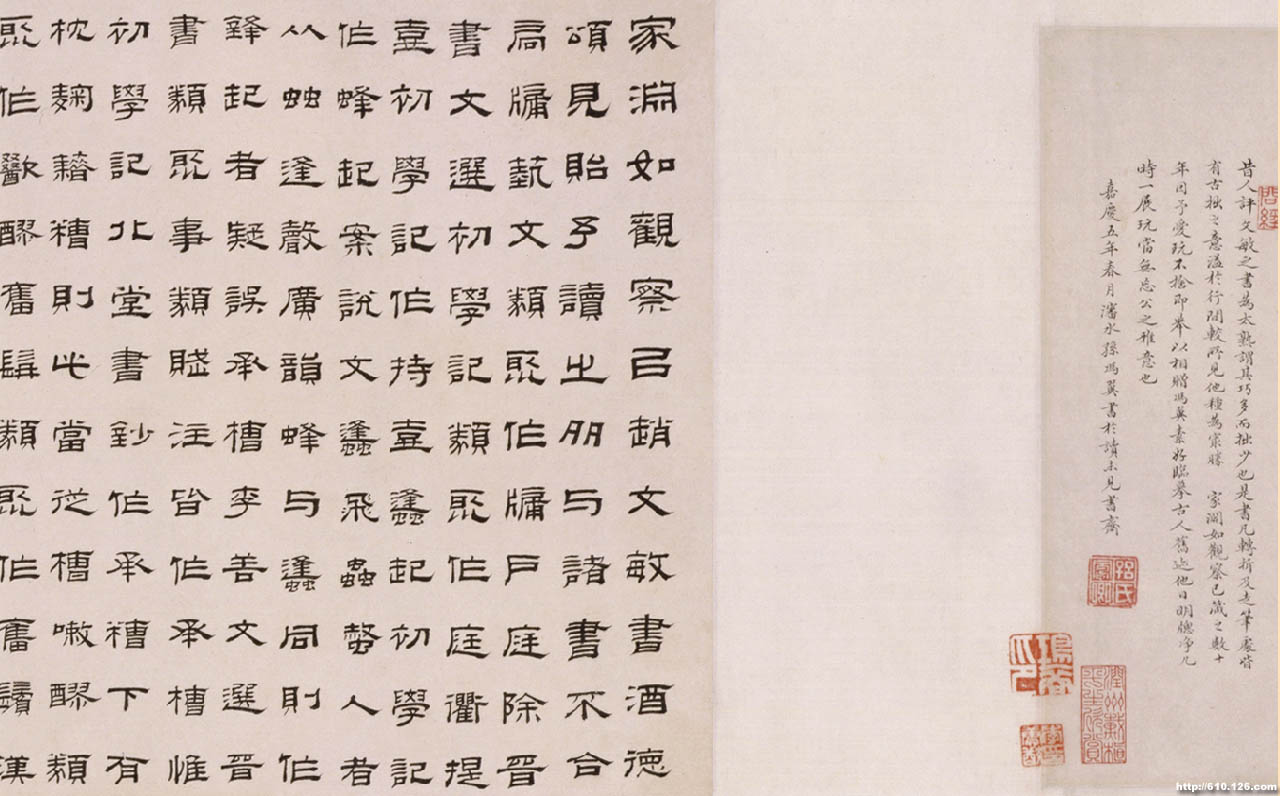 問經
昔人評文敏之書為太熟謂其巧多而拙少也是書凡轉折及走筆處皆
有古拙之意溢於行間較所見他種為㝡勝 家淵如觀察已藏之數十
年因予愛玩不捨即舉以相贈馮翼素好臨摹古人舊迹他日明牕净几
時一展玩當無忘公之雅意也
嘉慶五年春月瀋水孫馮翼書於讀未見書齋
家淵如觀察㠯趙文敏書酒德
頌見貽予讀之多与諸書不合
扃牖藝文類聚作牖戶庭除晉
書文選初學記類聚作庭衢提
壺初學記作持壺蠭起初學記
作蜂起案說文蠭飛蟲螫人者
从䖵逢聲廣韻蜂与蠭同則作
鋒起者疑誤承槽李善文選晉
書類聚事類賦注皆作承槽惟
初學記北堂書鈔作承糟下有
枕麴藉糟則此當從槽嗽醪類
聚作歠醪奮髯類聚作奮鬚漢
http://610.126.com